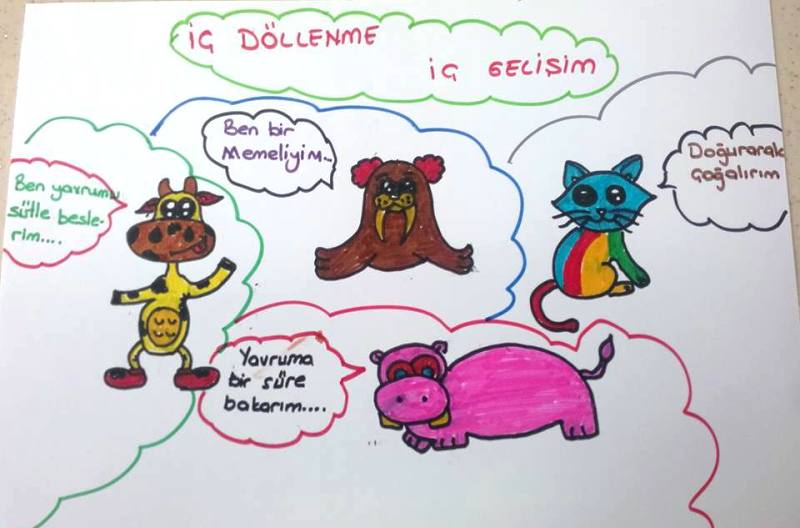 İÇ DÖLLENME
İÇ GELİŞİM
Ben bir
Memeliyim...
Doğurarak
Çoğalırım
Ben yavrumu
sütle besle-
rim....
Yavruma
bir süre
bakarım....